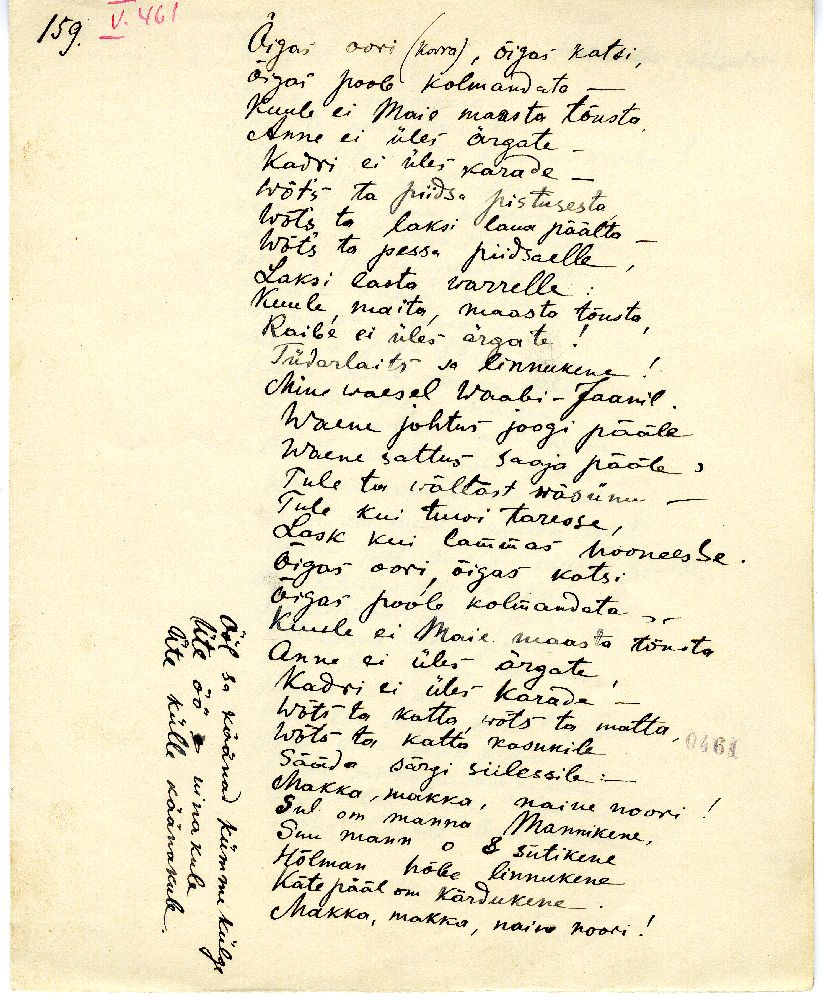 159.
V. 461
Õigas oori (korra), õigas katsi,
õigas poole kolmandata —
Kuule ei Maie maasta tõusta,
Anne ei üles ärgate —
Kadri ei üles karade —
Wõts ta piidsa pistusesta,
Wõts ta laksi laua päälta —
Wõts ta pessa piidsaelle,
Laksi lasta warrelle :
Kuule, maita, maasta tõusta,
Raibe ei üles ärgate !
Tüdarlaits sa linnukene !
Mine waesel Waabi-Jaanil.
Waene johtus joogi pääle
Waene sattus saaja pääle,
Tule ta wältast wäsünu —
Tule kui tuwi tareose,
Lask kui lammas hooneesse.
Õigas oori, õigas katsi
Õigas poole kolmandata —
Kuule ei Maie maasta tõusta
Anne ei üles ärgate,
Kadri ei üles karade —
Wõts ta katta, wõts ta matta,
Wõts ta katta kasukile
Säädä särgi siilessile :—
Makka, makka, naine noori !
Sul om manna Mannikene,
Suu mann o sütikene
Hõlman hõbe linnukene
Käte pääl om kärdukene.
Makka, makka, naine noori !
0461
Ööl sa käänad kümme külge
Üte öö ninakule
Üte külle käänakule.